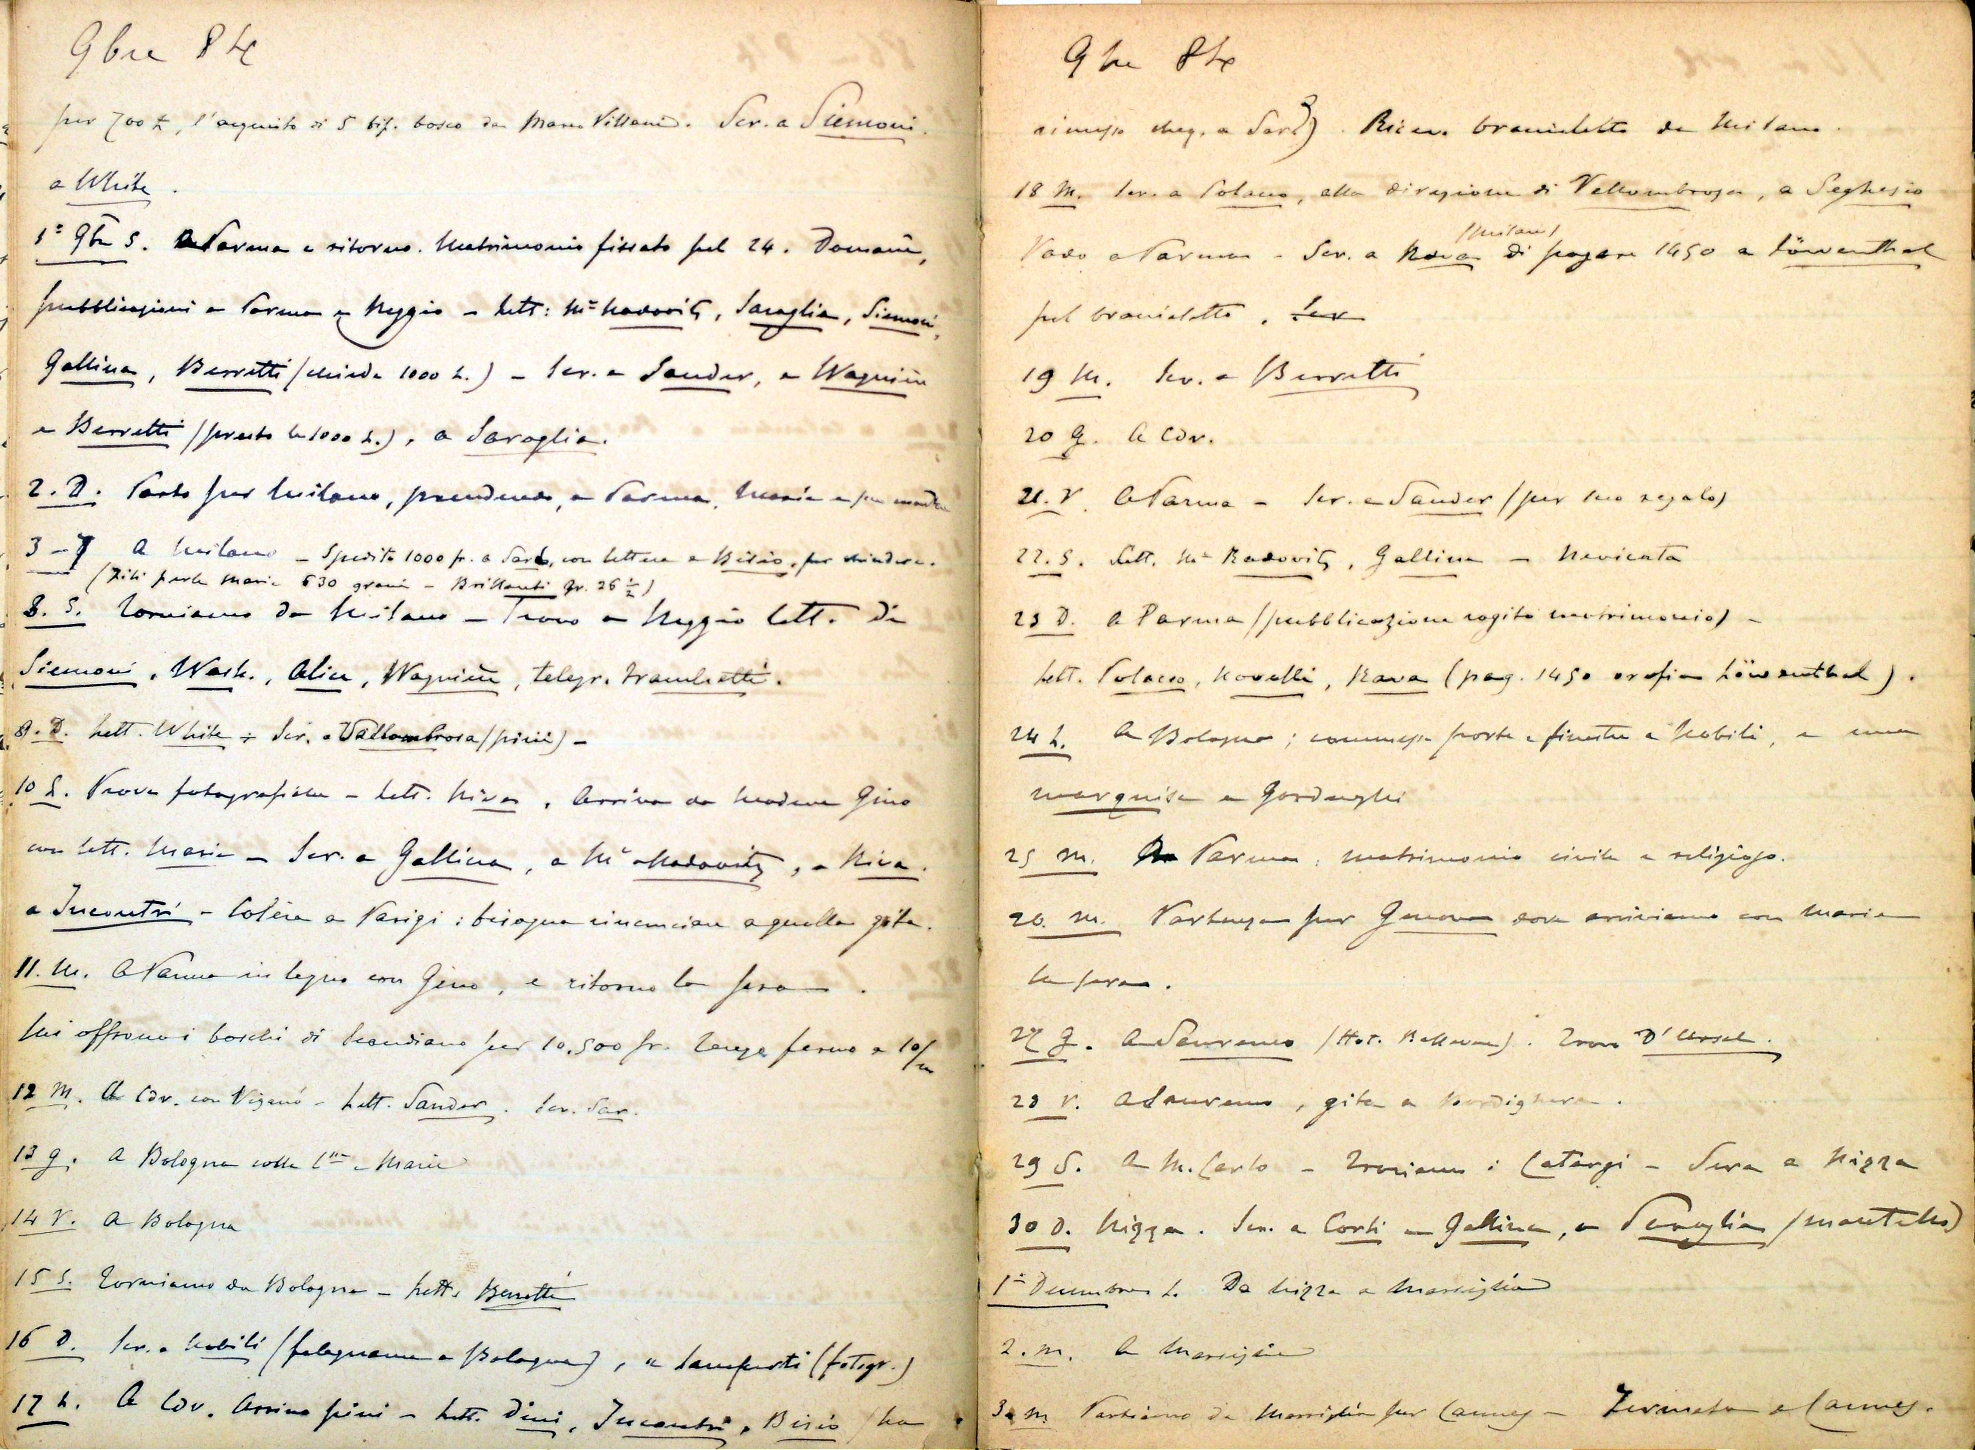 9bre 84
per 700 £, l'acquisto di 5 bif. bosco da Marco Villani. Scr. a Siemoni.
a White.
1° 9br S. A Parma e ritorno. Matrimonio fissato pel 24. Domani,
pubblicazioni a Parma e Reggio – Lett: Mr Radovitz, Saraglia, Siemoni,
Gallina, Berretti (chiede 1000 L.) – Scr. a Sander, a Wagnière
a Berretti (presto le 1000 L.), a Saraglia.
2. D. Parto per Milano, prendendo, a Parma, Maria e sua madre
3–7 A Milano – Spedito 1000 fr. a con lettera a Bisio, per
(Fili perle Maria 630 grani – Brillanti gr. 26 ½)
8. S. Torniamo da Milano – Trovo a Reggio lett. Di
Siemoni, Wash., Alice, Wagnière, telegr. Trambetti.
9. D. Lett. White – Scr. a Vallombrosa (pini) –
10 L. Prova fotografiche – Lett. Riva, Arriva da Modena Gino
con lett. Maria – Scr. a Gallina, a Mr Radovitz, a Riva.
a Incontri – Colèra a Parigi: bisogna rinunciare a quella gita.
11. M. A Parma in legno con Gino, e ritorno la sera.
Mi offrono i boschi di Scandiano per 10,500 fr. Tengo fermo a 10/m
12 M. A Cdv. con Viganò – Lett. Sander. Scr. Sar.
13 G. A Bologna colla e Maria
14 V. A Bologna
15 S. Torniamo da Bologna – Lett. Berretti
16 D. Scr. a Nobili (falegname a Bologna), a (fotogr.)
17 L. A Cdv. Arrivo pini – Lett. Dini, Incontri, Bisio (ha
9bre 84
rimesso cheq. a ). Ricev. braccialetto da Milano.
18 M. Scr. a Polacco, alla direzione di Vallombrosa, a Seghesio
Vado a Parma – Scr. a Rava (Milano) di pagare 1450 a Löwenthal
pel braccialetto. Scr
19 M. Scr. a Berretti
20 G. A Cdv.
21. V. A Parma – Scr. a Sander (per suo regalo)
22. S. Lett. Mr Radovitz, Gallina – Nevicata
23 D. A Parma (pubblicazione rogito matrimonio) –
Lett. Polacco, Novelli, Rava (pag. 1450 orefice Löwenthal).
24 L. A Bologna; commesse porte e finestre a Nobili, e una
marquise a Gordenghi
25 M. A Parma: matrimonio civile e religioso.
26. M. Partenza per Genova dove arriviamo con Maria
la sera.
27 G. A Sanremo (Hot. Bellevue). Trovo D'Ursel.
28 V. A Sanremo, gita a Bordighera.
29 S. A M. Carlo – Troviamo i Catargi – Sera a Nizza
30 D. Nizza. Scr. a Corti a Gallina, a Saraglia (mantello)
1° Decembre L. Da Nizza a Marsiglia
2. M. A Marsiglia
3. M Partiamo da Marsiglia per Cannes – Fermata a Cannes.